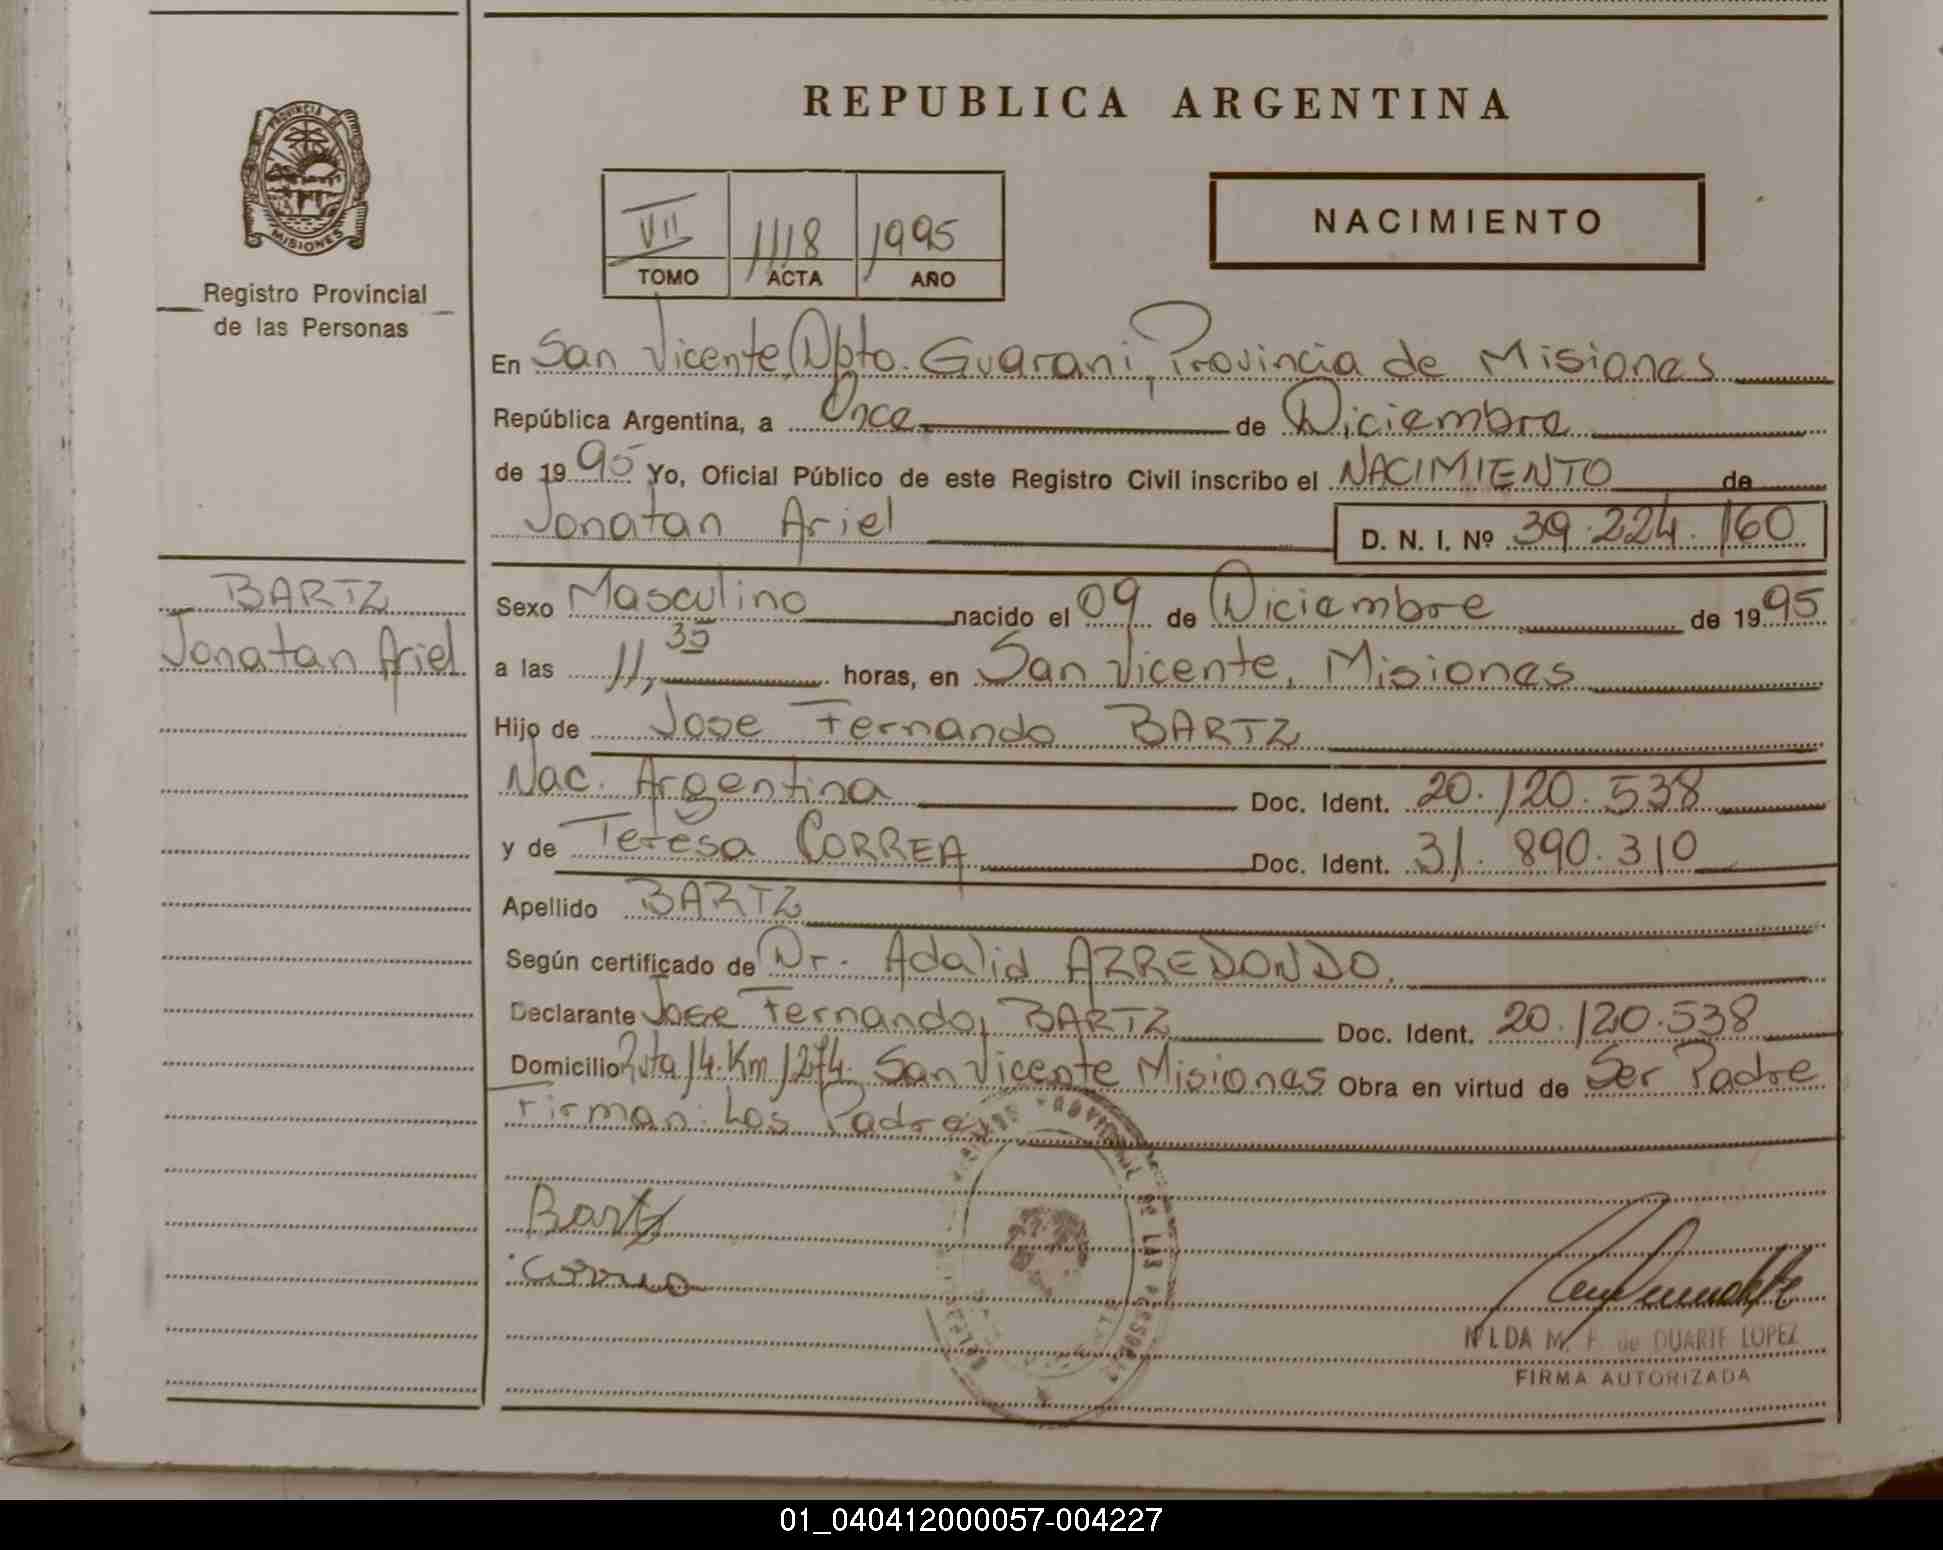 REPUBLICA ARGENTINA
PROVINCIA DE
MISIONES
Registro Provincial
de las Personas
VII 1118 1995
TOMO ACTA AÑO
NACIMIENTO
En San Vicente, Dpto. Guarani, Provincia de Misiones
República Argentina, a Once de Diciembre
de 1995 Yo, Oficial Público de este Registro Civil inscribo el NACIMIENTO de
Jonatan Ariel D. N. I. Nº 39.224.160
BARTZ
Jonatan Ariel
Sexo Masculino nacido el 09 de Diciembre de 1995
a las 11,35 horas, en San Vicente, Misiones
Hijo de Jose Fernando BARTZ
Nac. Argentina Doc. Ident. 20.120.538
y de Teresa CORREA Doc. Ident. 31.890.310
Apellido BARTZ
Según certificado de Dr. Adalid ARREDONDO.
Declarante Jose Fernando, BARTZ Doc. Ident. 20.120.538
Domicilio Ruta 14. Km 1274. San Vicente Misiones Obra en virtud de Ser Padre
Firman: Los Padres
Bartz
Correa
DE LAS
NILDA M. F. de DUARTE LOPEZ
FIRMA AUTORIZADA
01_040412000057-004227